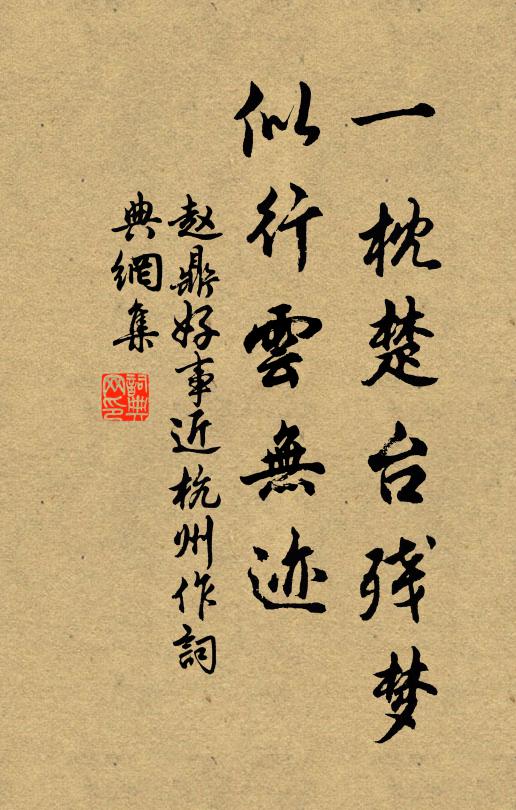 一枕楚台残梦
似行雲無迹
赵鼎好事近杭州作詞
典網集
詞典网印